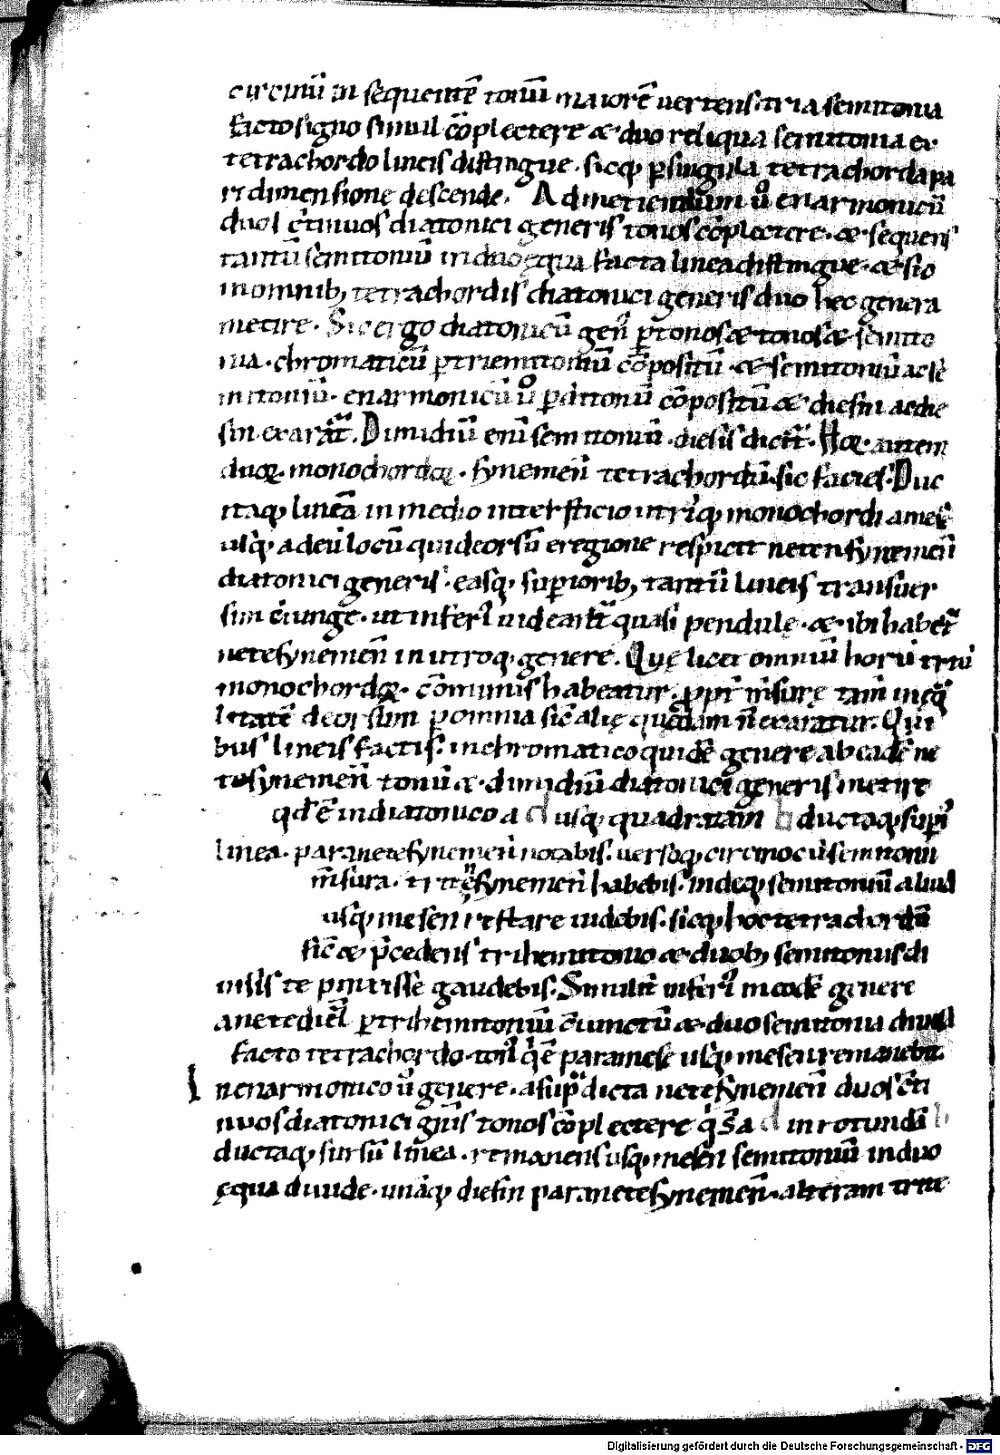 circinū in sequentē tonū maiorē uertens. tria semitonia
facto signo simul cōplectere & duo reliqua semitonia ex
tetrachordo lineis distingue. sicq; p singula tetrachorda pa
ri dimensione descende. Ad metiendum ū enarmonicū
duos cōtinuos diatonici generis tonos cōplectere. & sequens
tantū semitoniū in duo ęqua facta linea distingue. & sic
in omnib; tetrachordis diatonici generis duo hec genera
metire. Sic ergo diatonicū gen' p tonos & tonos & semito
nia. chromaticū p triemitoniū cōpositū. & semitoniū ac sē
mitoniū. enarmonicū ū p ditonū cōpositū & diesin ac die
sin exarat̄. Dimidiū enī semitonii. diesis dicit̄. Hoꝝ autem
duoꝝ monochordoꝝ. synemeñ tetrachordū sic facies. Duc
itaq; lineā in medio interfticio utriq; monochordi a mese
usq; ad eū locū qui deorsū e regione respicit neten synemeñ
diatonici generis. easq; supiorib; tantū lineis transuer
sim ciunge. ut inferi' uideant̄ quasi pendule. & ibi habet̄
nete synemeñ in utroq; genere. Quę licet omniū horū triū
monochordoꝝ. cōmunis habeatur. ppt̄ m̄surę tam̄ inęq̄
litatē deorsum p omnia sic̄ alię quędam n̄ exaratur. Qui
bus lineis factis. in chromatico quidē genere ab eadē ne
te synemeñ tonū & dimidiū diatonici generis metire
qd' ē in diatonico a d usq; quadratam b ductaq; supi'
linea. paranete synemeñ notabis. uersoq; circino cū semitonii
m̄sura. tritē synemeñ habebis. indeq; semitoniū aliud
usq; mesen restare uidebis. sicq; hoc tetrachordū
sic̄ & p̄cedens trihemitonio & duob; semitoniis di
uisis te puenisse gaudebis. Similit̄ inferi' in eodē genere
a nete diez' p trihemitoniū cūnctū & duo semitonia diuiso
facto tetrachordo. ton' q̄ ē paramese usq; mesen remanebit.
In enarmonico ū genere. a sup̄dicta nete synemeñ duos cōti
nuos diatonici gn̄is tonos cōplectere q̄ s̄ a d in rotundā b
ductaq; sursū linea. remanens usq; mesen semitoniū in duo
ęqua diuide. unāq; diesin paranete synemeñ. alteram trite